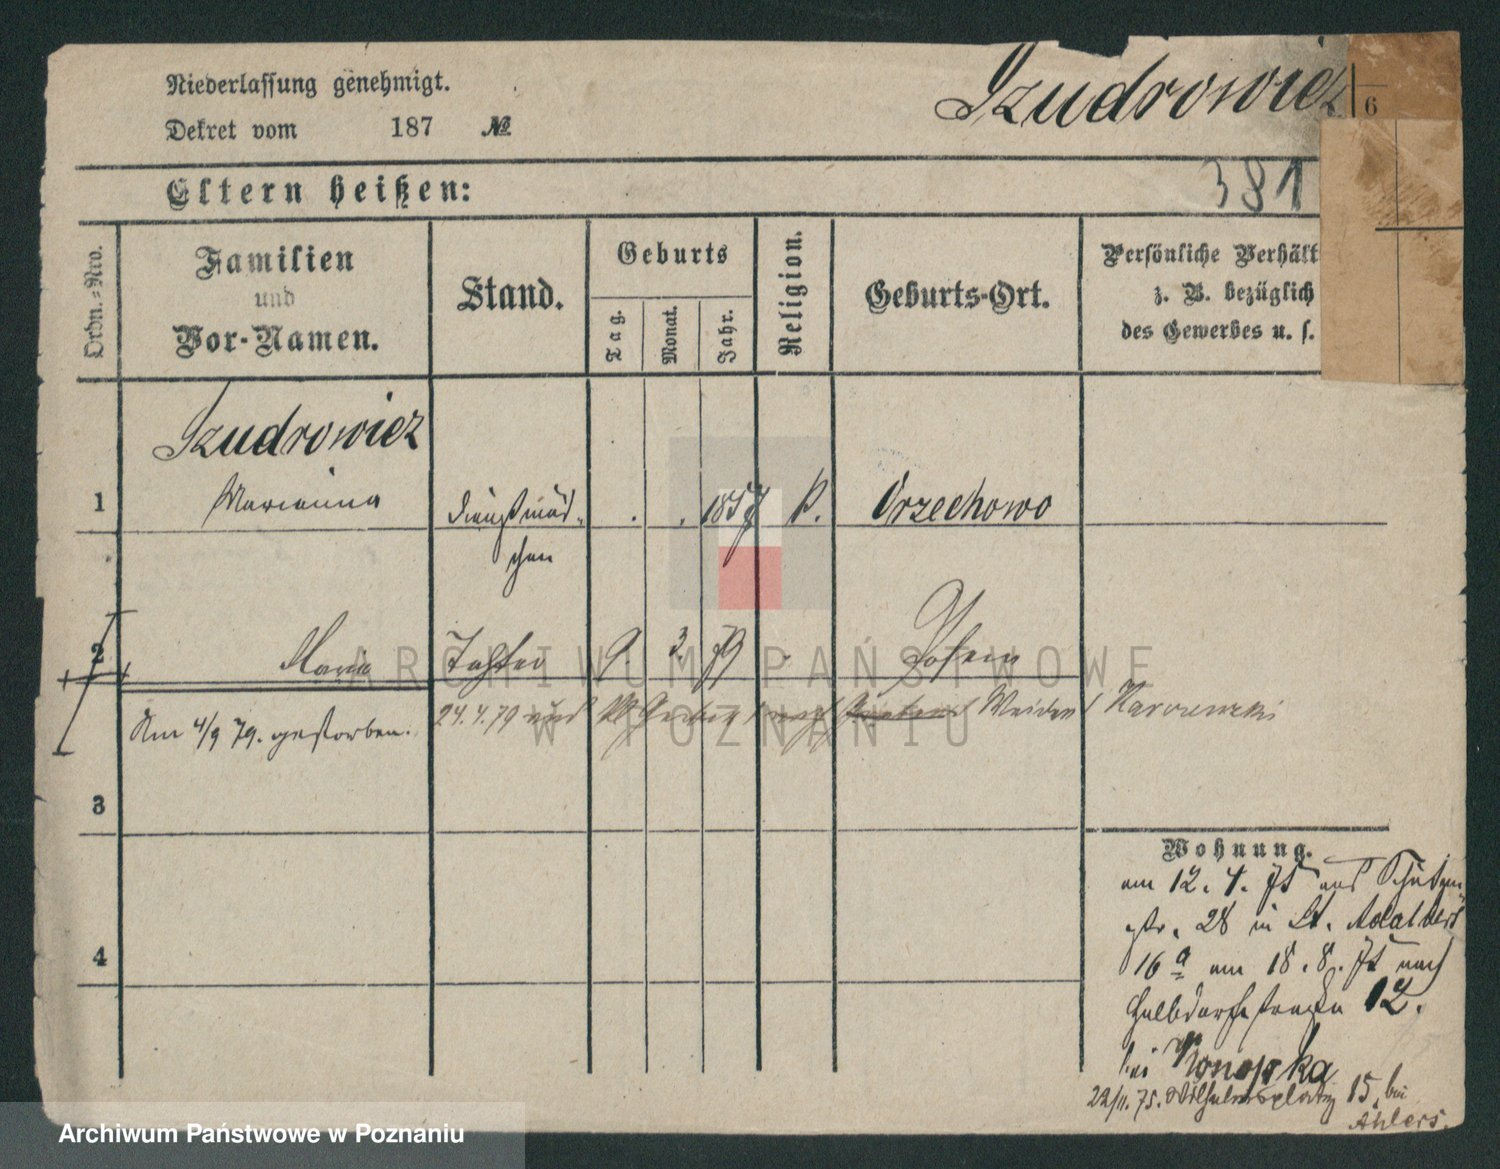 Niederlassung genehmigt.
Dekret vom 187 №
Szudrowicz
6
381
Eltern heißen:
Ordn.-Nro.
Familien
und
Vor-Namen.
Stand.
Geburts
Tag.
Monat.
Jahr.
Religion.
Geburts-Ort.
Persönliche Verhält
z. B. bezüglich
des Gewerbes u. s.
Szudrowicz
1 Marianna Dienstmäd- . . 1857 k. Orzechowo
chen
2 Maria Tochter 9. 3. 79 Posen
Am 4/9 79. gestorben. 24.4.79 nach
3
Wohnung.
am 12. 4. 75 aus Schützen
str. 28 in St. Adalbert
16a am 18. 8. 75 nach
Halbdorfstraße 12.
bei Konopka
22/11. 75. Wilhelmsplatz 15. bei
Ahlers.
4
ARCHIWUM PAŃSTWOWE
W POZNANIU
Archiwum Państwowe w Poznaniu